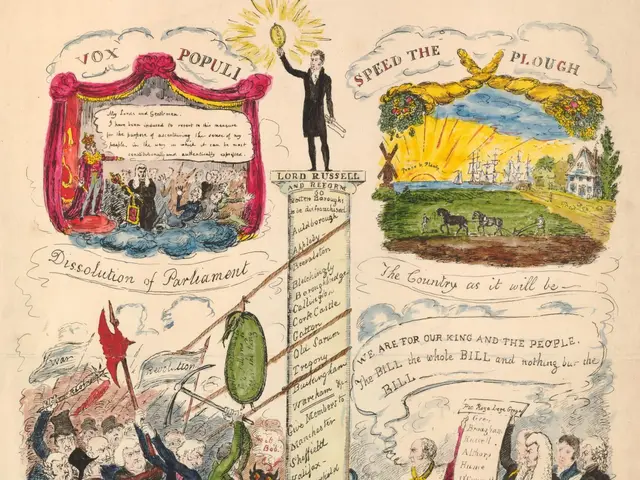 VOX POPULI
My Lords and Gentlemen.
I have been induced to resort to this measure
for the purpose of ascertaining the sense of my
people, in the way in which it can be most
constitutionally and authentically expressed.
Dissolution of Parliament
LORD RUSSELL
AND REFORM
Rotten Boroughs
to be disfranchised
Auldborough
Appleby
Beeralston
Bleckingly
Boroughbridge
Callington
Corfe Castle
Gatton
Old Sarum
Tregony
Buckingham
Wareham &c
Give Members to
Manchester
Sheffield
Halifax
SPEED THE PLOUGH
Peace & Plenty
The Country as it will be
WE ARE FOR OUR KING AND THE PEOPLE.
The BILL the whole BILL and nothing but the
BILL
War
Revolution
Grey
Brougham
Russell
Althorp
Hume